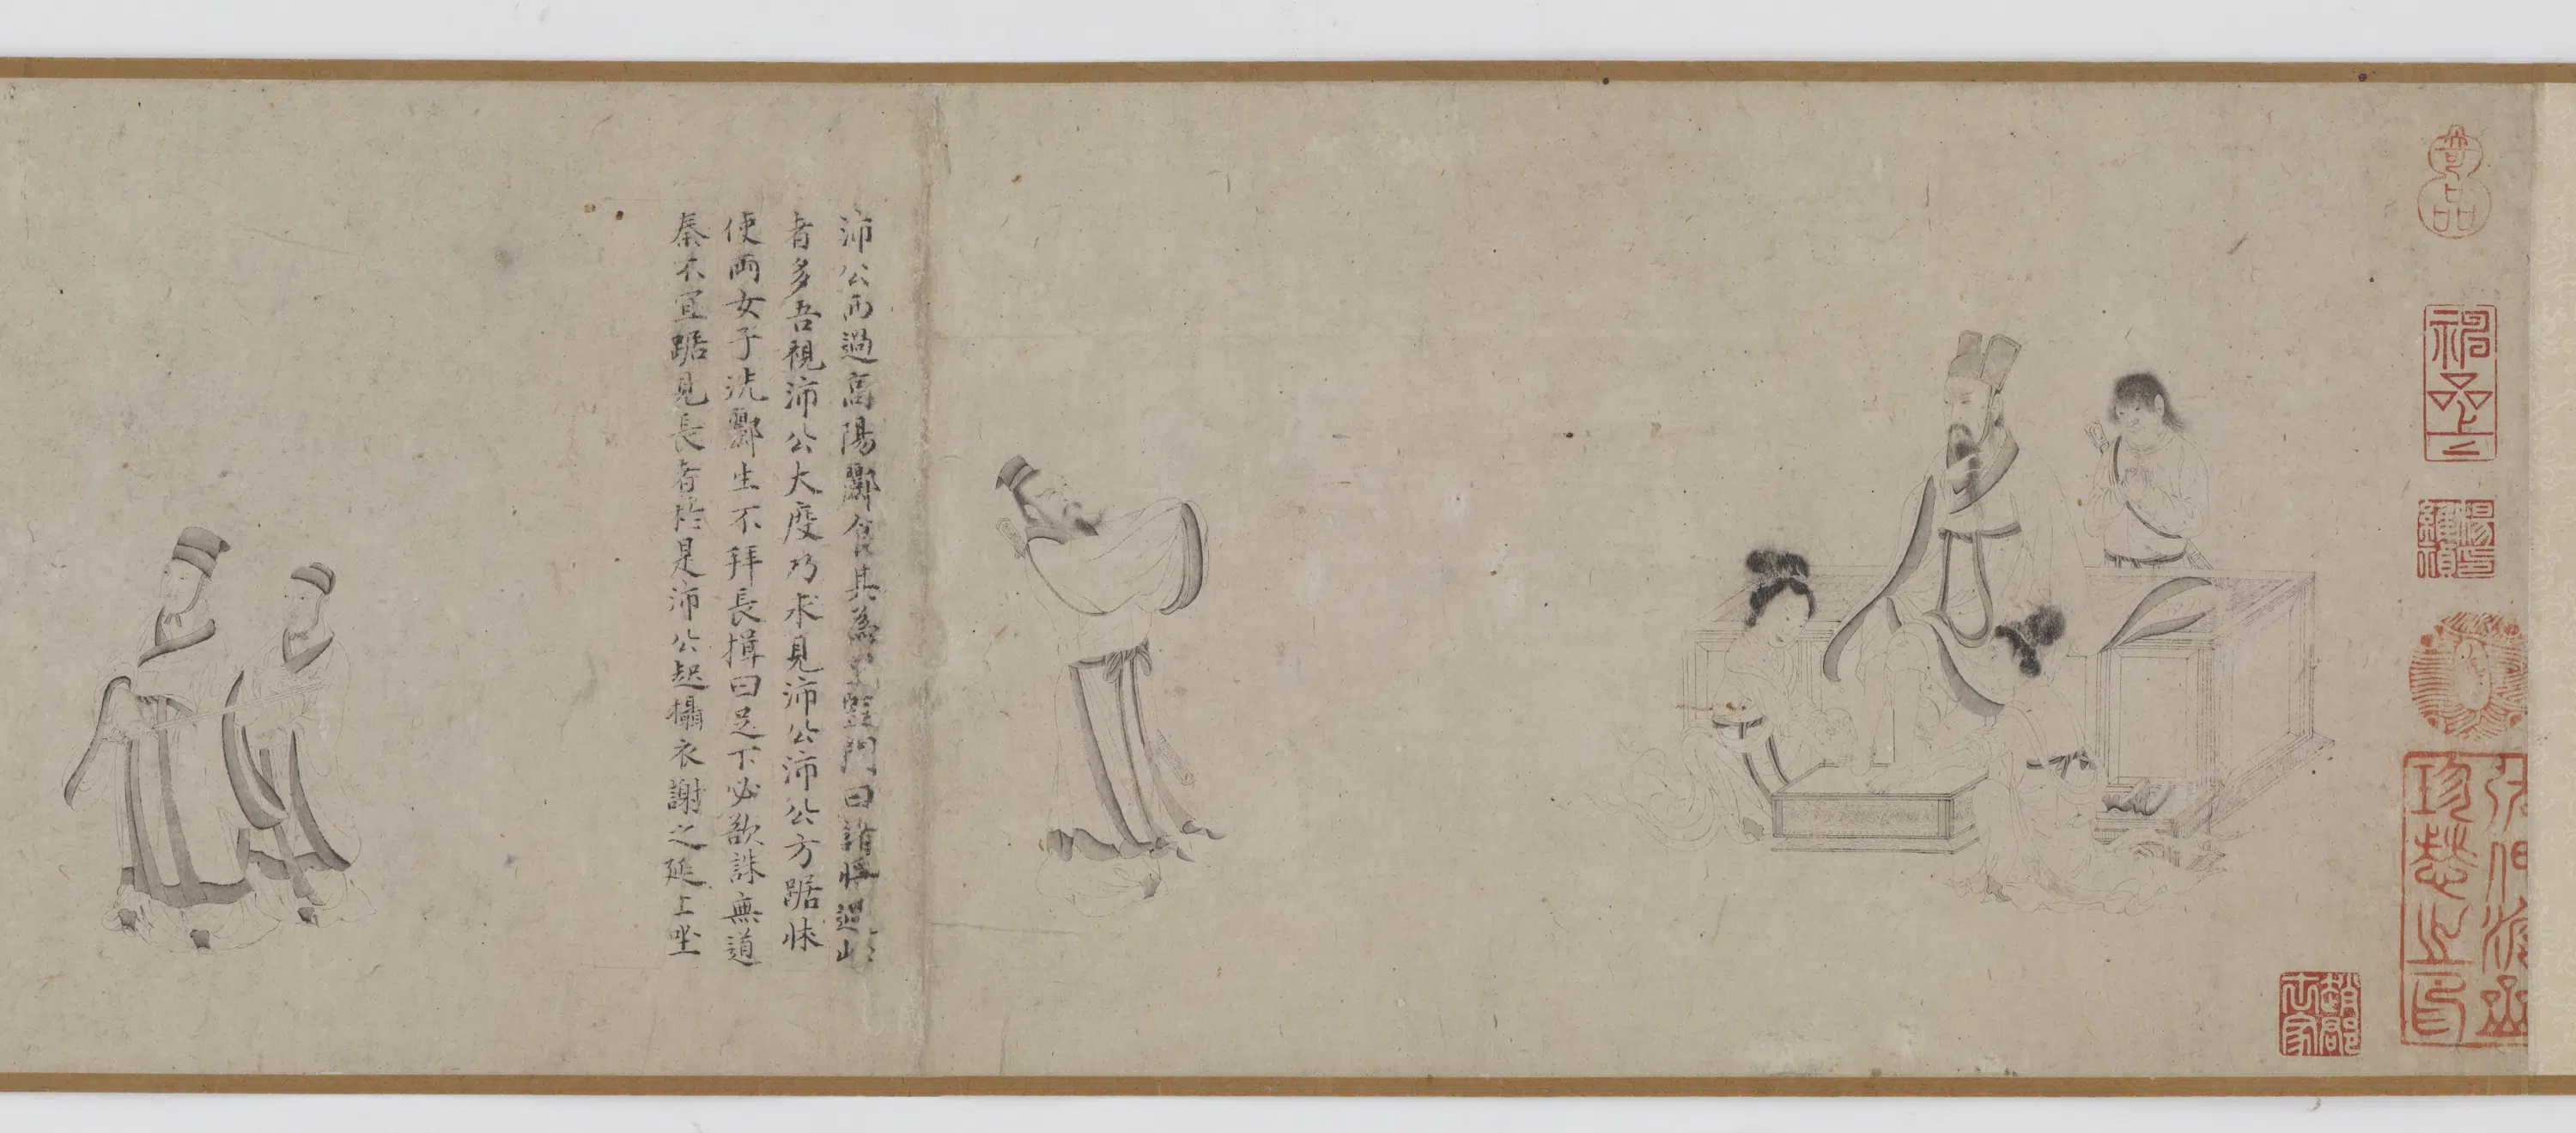 沛公西過高陽酈食其為監門曰諸將過此
者多吾視沛公大度乃求見沛公沛公方踞牀
使兩女子洗酈生不拜長揖曰足下必欲誅無道
秦不宜踞見長者於是沛公起攝衣謝之延上坐
奇品
楊維禎印
趙郡
珍藝之印